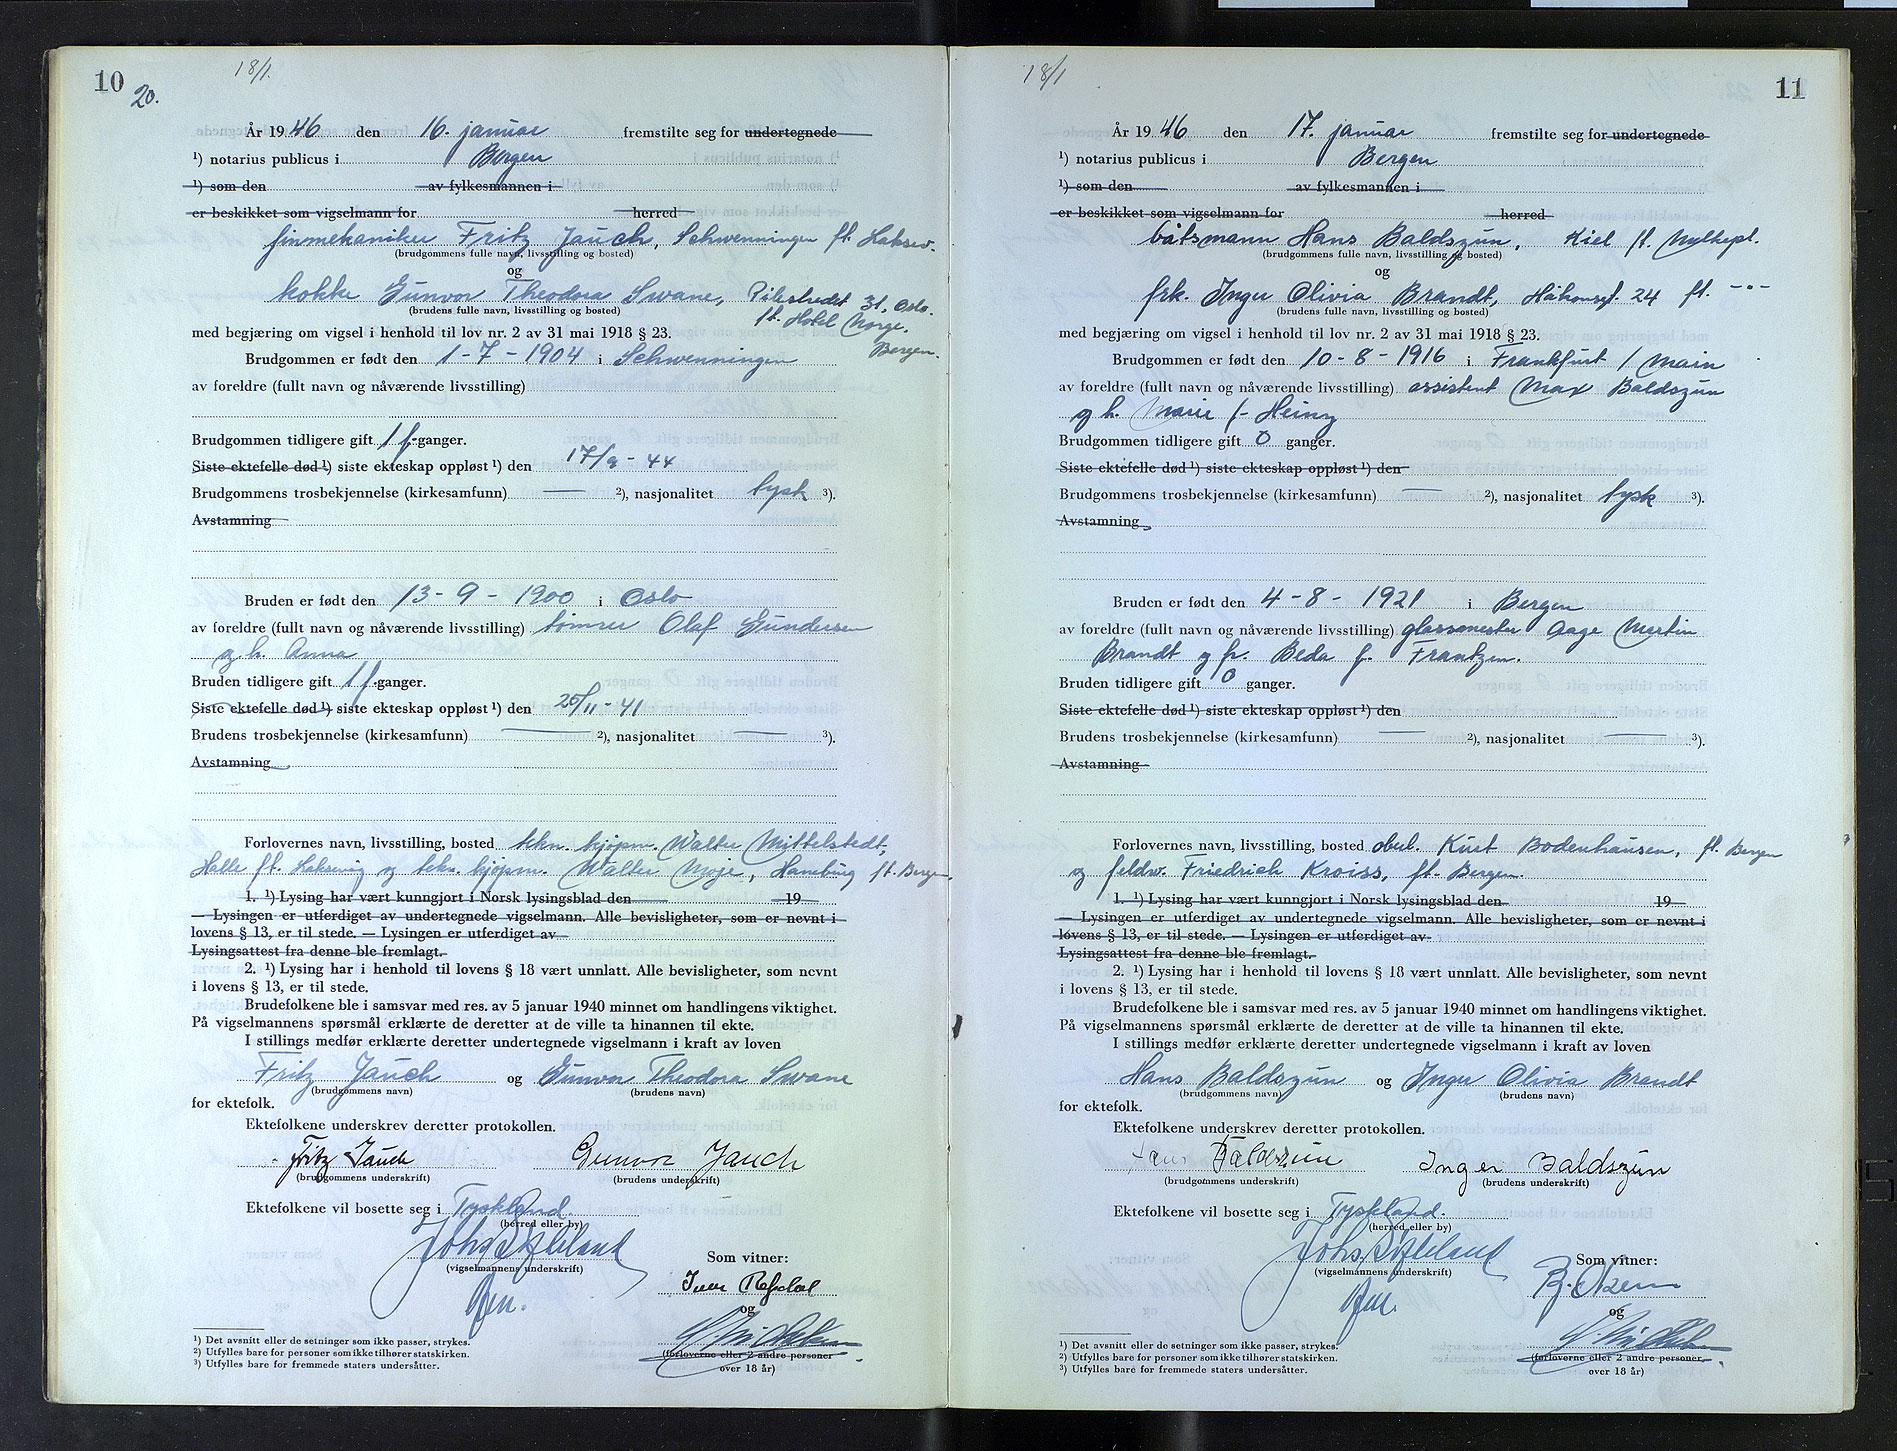 10
20.
18/1.
År 19 46 den 16. januar fremstilte seg for undertegnede
¹) notarius publicus i Bergen
¹) som den av fylkesmannen i
er beskikket som vigselmann for herred
finmekaniker Fritz Jauch, Schwenningen ft. Laksev.
(brudgommens fulle navn, livsstilling og bosted)
og
kokke Gunvor Theodora Swane, Pilestredet 31, Oslo.
(brudens fulle navn, livsstilling og bosted) ft. Hotel Norge,
med begjæring om vigsel i henhold til lov nr. 2 av 31 mai 1918 § 23.
Bergen.
Brudgommen er født den 1-7-1904 i Schwenningen
av foreldre (fullt navn og nåværende livsstilling)
Brudgommen tidligere gift 1 g. ganger.
Siste ektefelle død ¹) siste ekteskap oppløst ¹) den 17/9 - 44
Brudgommens trosbekjennelse (kirkesamfunn) — ²), nasjonalitet tysk ³).
Avstamning
Bruden er født den 13-9-1900 i Oslo
av foreldre (fullt navn og nåværende livsstilling) tømrer Olaf Gundersen
og h. Anna
Bruden tidligere gift 1 g. ganger.
Siste ektefelle død ¹) siste ekteskap oppløst ¹) den 25/11 - 41
Brudens trosbekjennelse (kirkesamfunn) — ²), nasjonalitet — ³).
Avstamning
Forlovernes navn, livsstilling, bosted tekn. kjøpm. Walter Mittelstedt,
Halle ft. Laksevåg og tekn. kjøpm. Walter Moje, Hamburg ft. Bergen.
1. ¹) Lysing har vært kunngjort i Norsk lysingsblad den 19
— Lysingen er utferdiget av undertegnede vigselmann. Alle bevisligheter, som er nevnt i
lovens § 13, er til stede. — Lysingen er utferdiget av
Lysingsattest fra denne ble fremlagt.
2. ¹) Lysing har i henhold til lovens § 18 vært unnlatt. Alle bevisligheter, som nevnt
i lovens § 13, er til stede.
Brudefolkene ble i samsvar med res. av 5 januar 1940 minnet om handlingens viktighet.
På vigselmannens spørsmål erklærte de deretter at de ville ta hinannen til ekte.
I stillings medfør erklærte deretter undertegnede vigselmann i kraft av loven
Fritz Jauch og Gunvor Theodora Swane
(brudgommens navn) (brudens navn)
for ektefolk.
Ektefolkene underskrev deretter protokollen.
Fritz Jauch Gunvor Jauch
(brudgommens underskrift) (brudens underskrift)
Ektefolkene vil bosette seg i Tyskland.
(herred eller by)
(vigselmannens underskrift)
Som vitner:
og
(forloverne eller 2 andre personer
over 18 år)
¹) Det avsnitt eller de setninger som ikke passer, strykes.
²) Utfylles bare for personer som ikke tilhører statskirken.
³) Utfylles bare for fremmede staters undersåtter.
18/1
11
År 19 46 den 17. januar fremstilte seg for undertegnede
¹) notarius publicus i Bergen
¹) som den av fylkesmannen i
er beskikket som vigselmann for herred
båtsmann Hans Baldszun, Kiel ft. Nyllepl.
(brudgommens fulle navn, livsstilling og bosted)
og
frk. Inger Olivia Brandt, Håkonsgt. 24 ft. -"-
(brudens fulle navn, livsstilling og bosted)
med begjæring om vigsel i henhold til lov nr. 2 av 31 mai 1918 § 23.
Brudgommen er født den 10-8-1916 i Frankfurt / Main
av foreldre (fullt navn og nåværende livsstilling) assistent Max Baldszun
og h. Marie f. Heinz
Brudgommen tidligere gift 0 ganger.
Siste ektefelle død ¹) siste ekteskap oppløst ¹) den
Brudgommens trosbekjennelse (kirkesamfunn) — ²), nasjonalitet tysk ³).
Avstamning
Bruden er født den 4-8-1921 i Bergen
av foreldre (fullt navn og nåværende livsstilling) glassmester Aage Martin
Brandt og fr. Beda f. Frantzen.
Bruden tidligere gift 0 ganger.
Siste ektefelle død ¹) siste ekteskap oppløst ¹) den
Brudens trosbekjennelse (kirkesamfunn) — ²), nasjonalitet — ³).
Avstamning
Forlovernes navn, livsstilling, bosted obul. Kurt Bodenhausen, ft. Bergen
og feldw. Friedrich Kroiss, ft. Bergen.
1. ¹) Lysing har vært kunngjort i Norsk lysingsblad den 19
— Lysingen er utferdiget av undertegnede vigselmann. Alle bevisligheter, som er nevnt i
lovens § 13, er til stede. — Lysingen er utferdiget av
Lysingsattest fra denne ble fremlagt.
2. ¹) Lysing har i henhold til lovens § 18 vært unnlatt. Alle bevisligheter, som nevnt
i lovens § 13, er til stede.
Brudefolkene ble i samsvar med res. av 5 januar 1940 minnet om handlingens viktighet.
På vigselmannens spørsmål erklærte de deretter at de ville ta hinannen til ekte.
I stillings medfør erklærte deretter undertegnede vigselmann i kraft av loven
Hans Baldszun og Inger Olivia Brandt
(brudgommens navn) (brudens navn)
for ektefolk.
Ektefolkene underskrev deretter protokollen.
Hans Baldszun Inger Baldszun
(brudgommens underskrift) (brudens underskrift)
Ektefolkene vil bosette seg i Tyskland.
(herred eller by)
(vigselmannens underskrift)
Som vitner:
og
(forloverne eller 2 andre personer
over 18 år)
¹) Det avsnitt eller de setninger som ikke passer, strykes.
²) Utfylles bare for personer som ikke tilhører statskirken.
³) Utfylles bare for fremmede staters undersåtter.